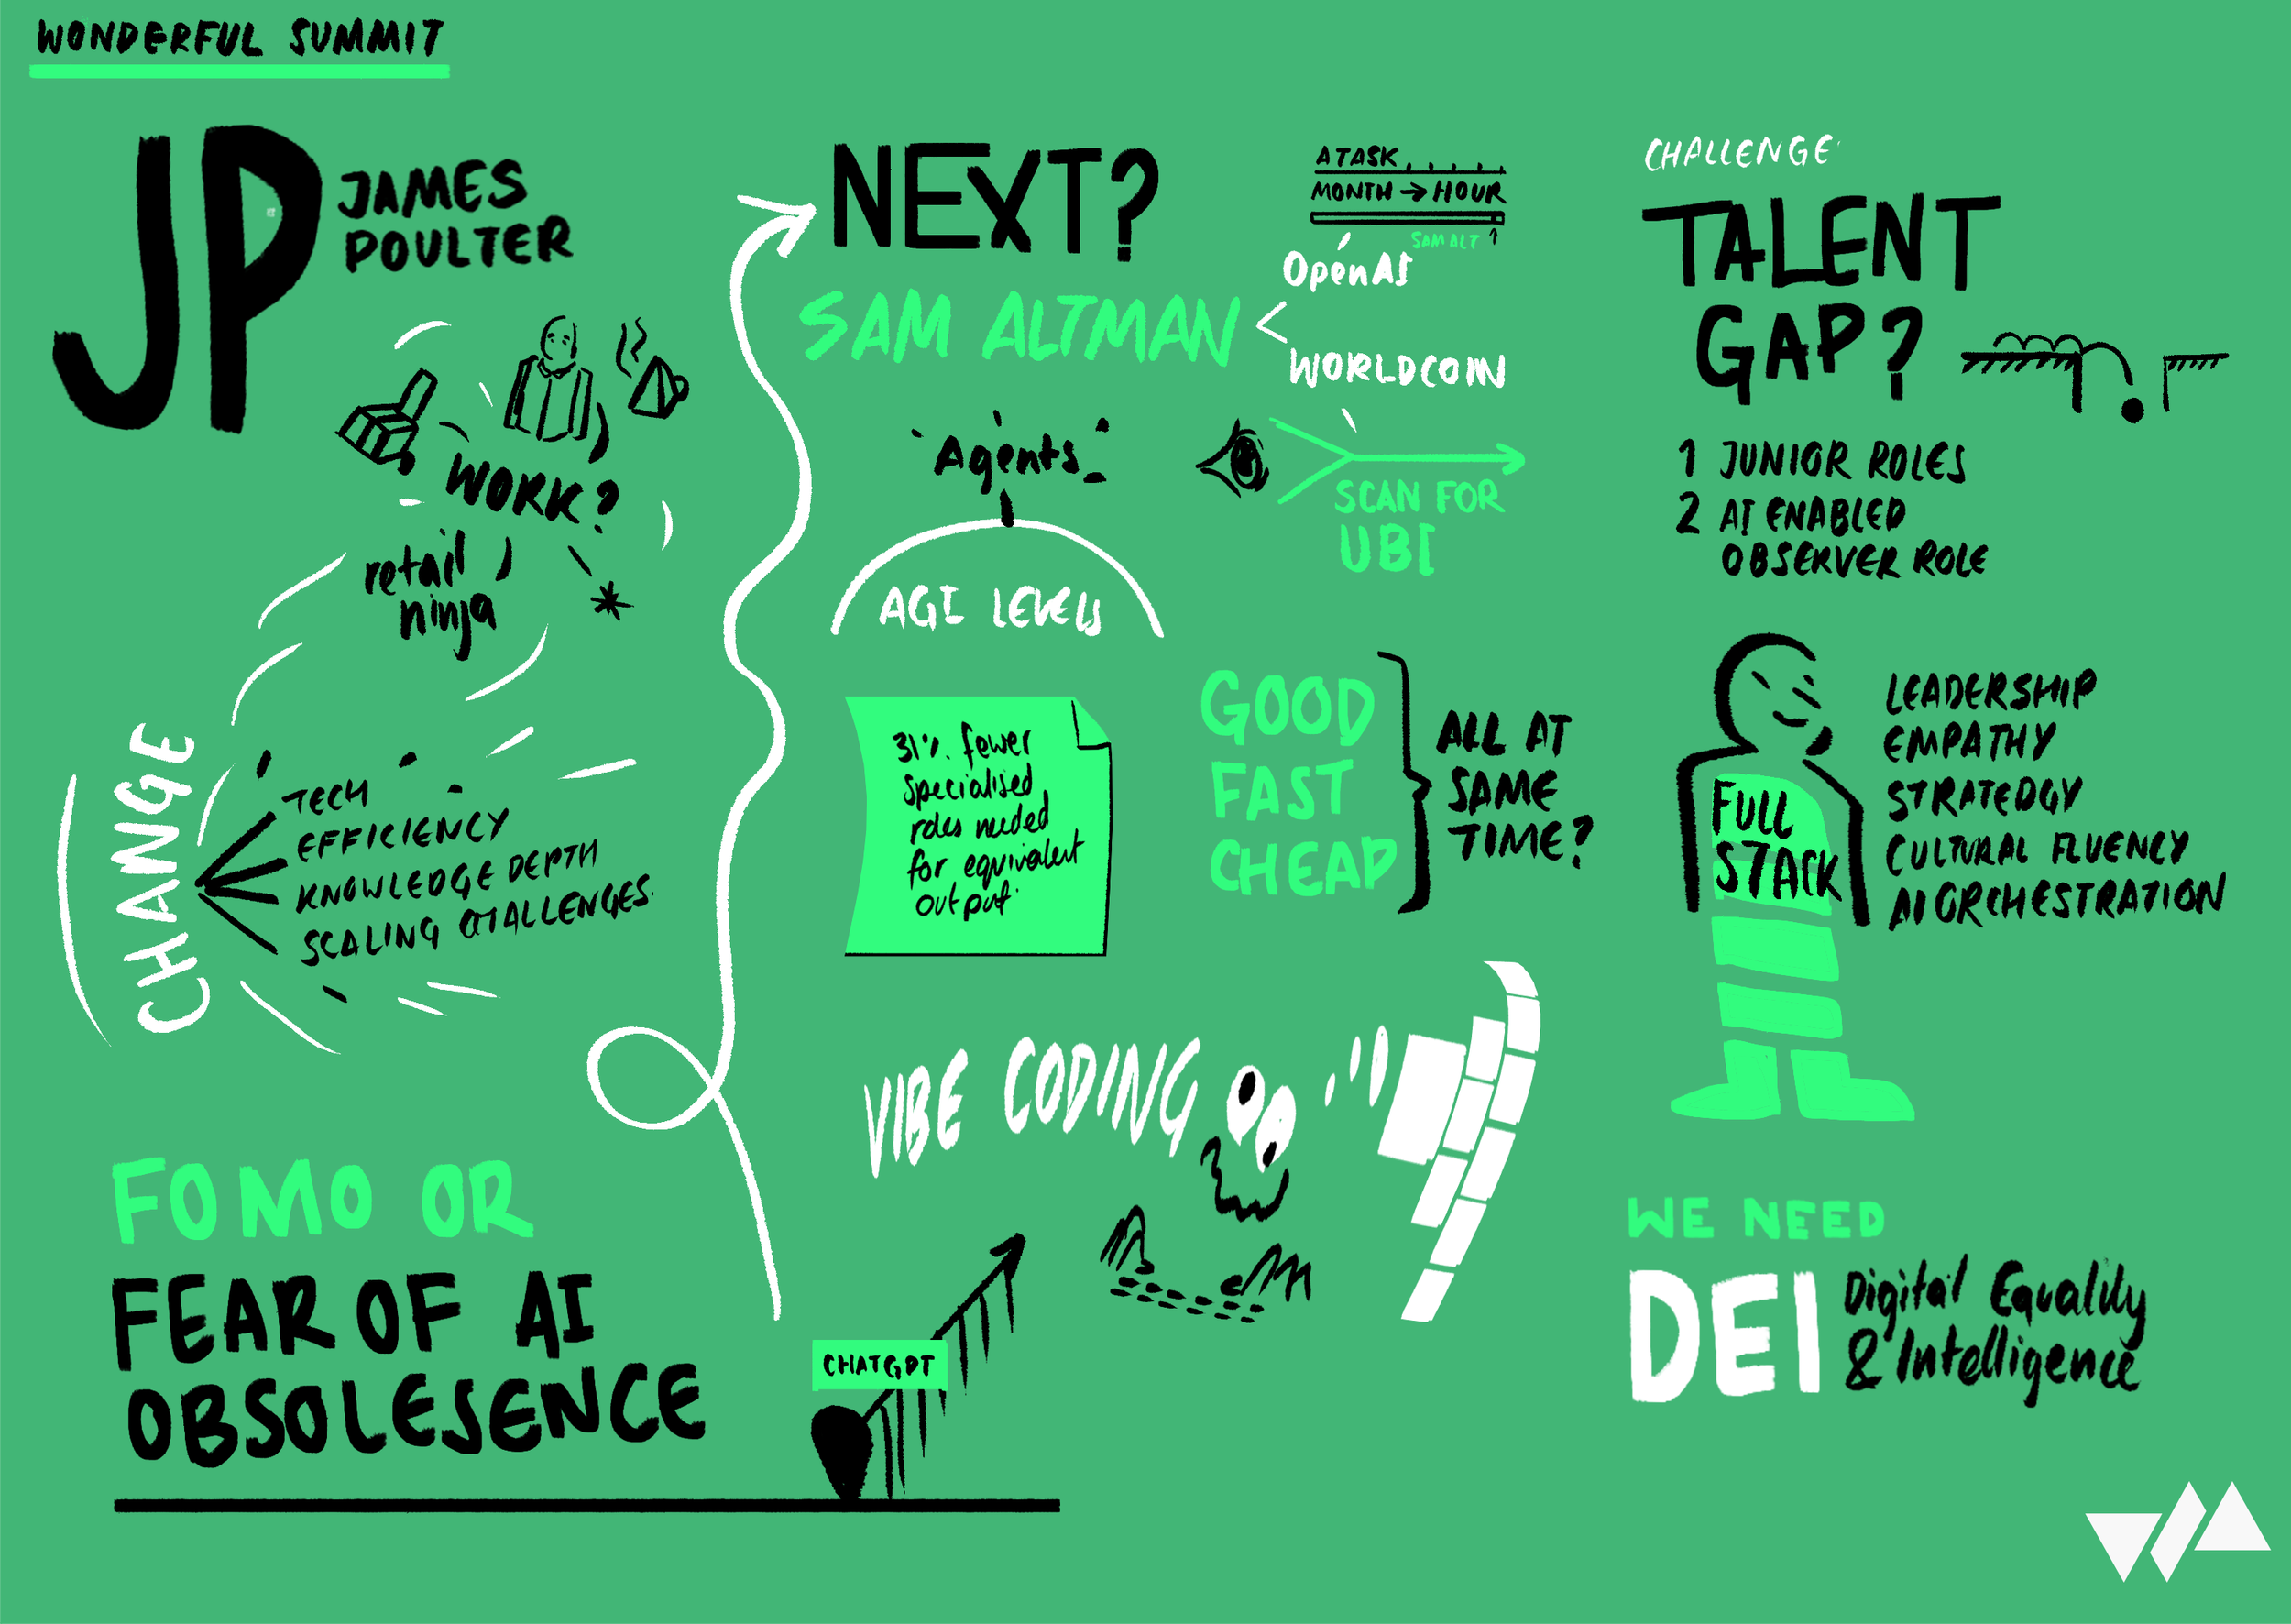 WONDERFUL SUMMIT
JP
JAMES
POULTER
WORK?
retail
ninja
CHANGE
TECH
EFFICIENCY
KNOWLEDGE DEPTH
SCALING CHALLENGES.
FOMO OR
FEAR OF AI
OBSOLESENCE
NEXT?
SAM ALTMAN
A TASK
MONTH → HOUR
SAM ALT
OpenAI
WORLDCOIN
Agents
SCAN FOR
UBI
AGI LEVELS
31% fewer
specialised
roles needed
for equivalent
output
GOOD
FAST
CHEAP
ALL AT
SAME
TIME?
VIBE CODING
CHATGPT
CHALLENGE
TALENT
GAP?
1 JUNIOR ROLES
2 AI ENABLED
OBSERVER ROLE
FULL
STACK
LEADERSHIP
EMPATHY
STRATEDGY
CULTURAL FLUENCY
AI ORCHESTRATION
WE NEED
DEI
Digital Equality
& Intelligence